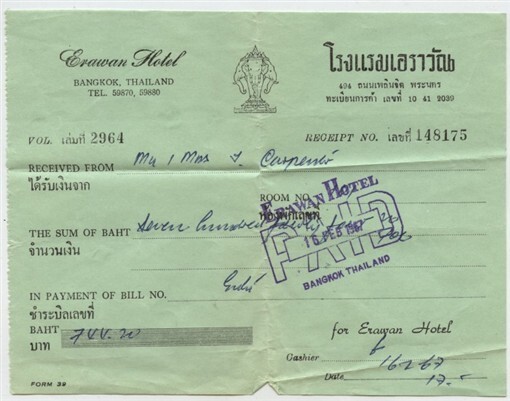 Erawan Hotel
BANGKOK, THAILAND
TEL. 59870, 59880
โรงแรมเอราวัณ
494 ถนนเพลินจิต พระนคร
ทะเบียนการค้า เลขที่ 10 41 2039
VOL. เล่มที่ 2964
RECEIPT NO. เลขที่ 148175
RECEIVED FROM Carpenter
ได้รับเงินจาก
ROOM NO.
THE SUM OF BAHT Seven hundred
จำนวนเงิน
ERAWAN HOTEL
16 FEB 1967
PAID
BANGKOK THAILAND
IN PAYMENT OF BILL NO.
ชำระบิลเลขที่
BAHT 744.20
บาท
for Erawan Hotel
Cashier
Date 16/2/67
FORM 39